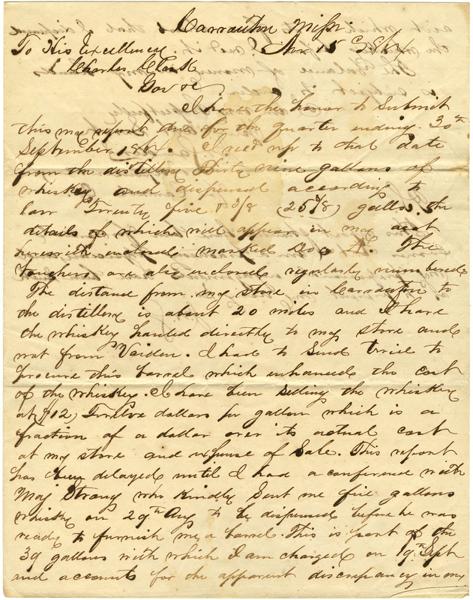 Carrollton Missi.
Nov 15 1864
To His Excellency
Charles Clark
Gov &c
I have the honor to submit
this my report due for the quarter ending 30th
September 1864. I recd up to that date
from the distillery thirty nine gallons of
whiskey and dispensed according to
law Twenty five & 5/8 (25 5/8) gallons the
details of which will appear in my acct
herewith enclosed marked Doc A. The
vouchers are also enclosed regularly numbered
The distance from my store in Carrollton to
the distillery is about 20 miles and I have
the whiskey hauled directly to my store and
not from Vaiden. I had to send twice to
procure this barrel which enhanced the cost
of the whiskey. I have been selling the whiskey
at $12) Twelve dollars per gallon which is a
fraction of a dollar over its actual cost
at my store and expense of sale. This report
has been delayed until I had a conference with
Maj Strong who kindly sent me five gallons
whisky on 29th Aug to be dispensed before he was
ready to furnish me a barrel. This is part of the
39 gallons with which I am charged on 19th Sept
and accounts for the apparent discrepancy in my